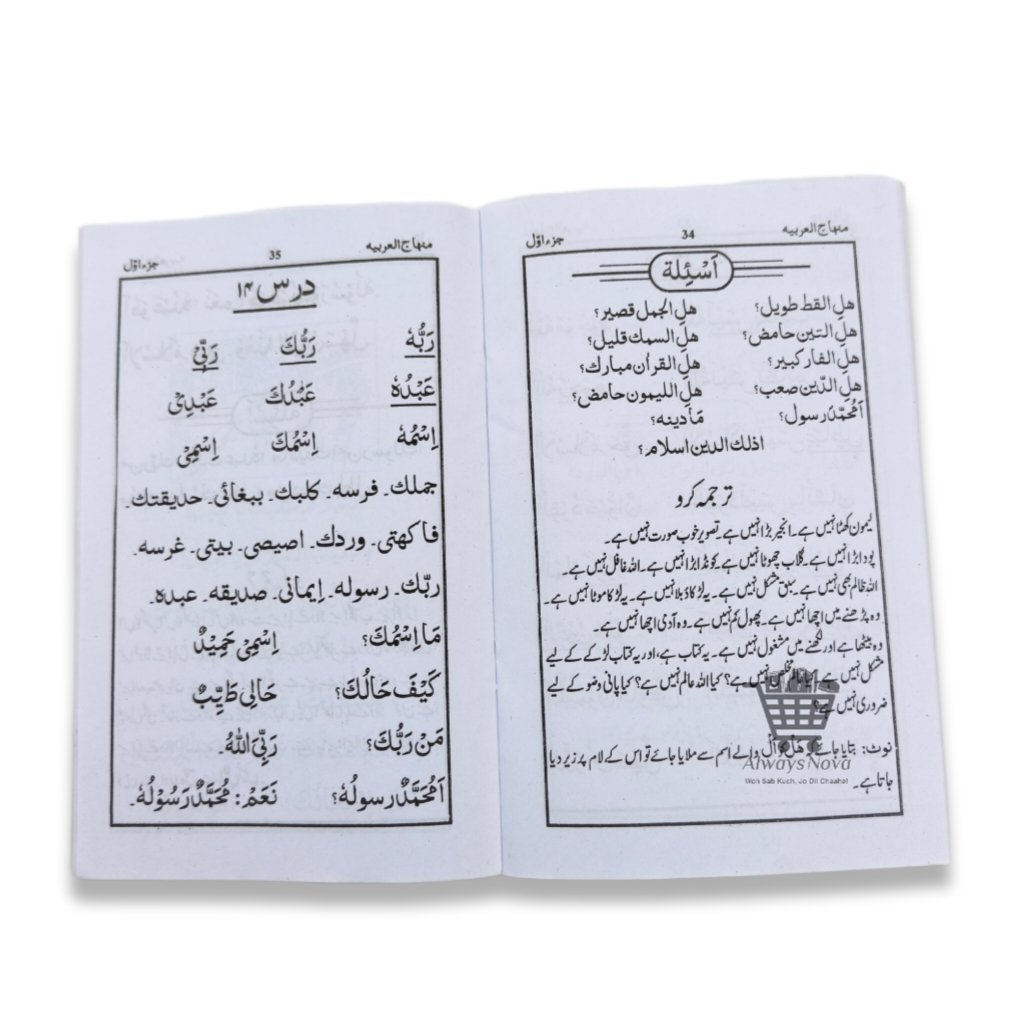 منهاج العربيه 34 جزء اوّل
اَسْئِلة
هلِ القط طويل؟ هلِ الجمل قصير؟
هلِ التين حامض؟ هلِ السمك قليل؟
هلِ الفار كبير؟ هلِ القراٰن مبارك؟
هلِ الدّين صعب؟ هلِ الليمون حامض؟
اَمُحَمَّدٌ رسول؟ مَا دينه؟
اذلك الدين اسلام؟
ترجمہ کرو
لیمون کھٹا نہیں ہے۔ انجیر بڑا نہیں ہے۔ تصویر خوب صورت نہیں ہے۔
پودا بڑا نہیں ہے۔ گلاب چھوٹا نہیں ہے۔ کونڈا بڑا نہیں ہے۔ اللہ غافل نہیں ہے۔
اللہ ظالم بھی نہیں ہے۔ سبق مشکل نہیں ہے۔ یہ لڑکا دُبلا نہیں ہے۔ یہ لڑکا موٹا نہیں ہے۔
وہ پڑھنے میں اچھا نہیں ہے۔ پھول نم نہیں ہے۔ وہ آدمی اچھا نہیں ہے۔
وہ بیٹھا ہے اور لکھنے میں مشغول نہیں ہے۔ یہ کتاب ہے، اور یہ کتاب لڑکے کے لیے
مشکل نہیں ہے۔ کیا عالم مخلص نہیں ہے؟ کیا اللہ عالم نہیں ہے؟ کیا پانی وضو کے لیے
ضروری نہیں ہے؟
نوٹ: بتایا جائے کہ هَلْ کو اَلْ والے اسم سے ملایا جائے تو اس کے لام پر زیر دیا
جاتا ہے۔
AlwaysNova
Woh Sab Kuch, Jo Dil Chaahe!
منهاج العربيه 35 جزء اوّل
درس ۱۴
رَبُّهٗ رَبُّكَ رَبِّیْ
عَبْدُهٗ عَبْدُكَ عَبْدِیْ
اِسْمُهٗ اِسْمُكَ اِسْمِیْ
جملك۔ فرسه۔ كلبك۔ ببغائی۔ حديقتك۔
فاكهتی۔ وردك۔ اصيصی۔ بيتی۔ غرسه۔
ربّك۔ رسوله۔ اِيمانی۔ صديقه۔ عبده۔
مَا اِسْمُكَ؟ اِسْمِیْ حَمِيْدٌ
كَيْفَ حَالُكَ؟ حَالِیْ طَيِّبٌ
مَنْ رَبُّكَ؟ رَبِّیَ اللهُ۔
اَمُحَمَّدٌ رسولهٗ؟ نَعَمْ: مُحَمَّدٌ رَسُوْلُهٗ۔